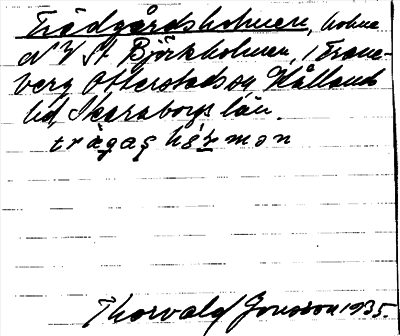 Trädgårdsholmen, holme
N V St Björkholmen, i Trane-
berg Otterstads sg Kållands
hd, Skaraborgs län.
trägaş hɔ́ɽmən
Thorvald Jonsson 1935.